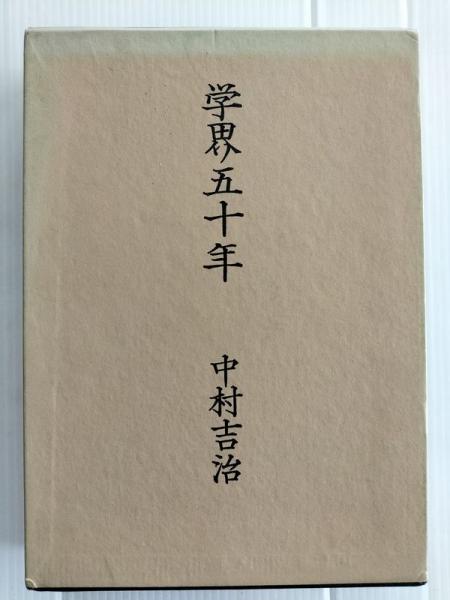 学界五十年
中村吉治